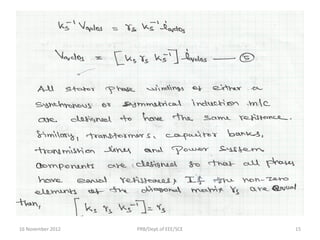 Ks⁻¹ Vqdos = rs Ks⁻¹ iqdos
Vqdos = [Ks rs Ks⁻¹] iqdos — ⑤
All stator phase windings of either a
synchronous or symmetrical induction m/c
are designed to have the same resistance.
Similarly, transformers, capacitor banks,
transmission lines and power system
components are designed so that all phases
have equal resistances, If the non-zero
elements of the diagonal matrix rs are equal
then,
[Ks rs Ks⁻¹] = rs
16 November 2012 PRB/Dept.of EEE/SCE 15